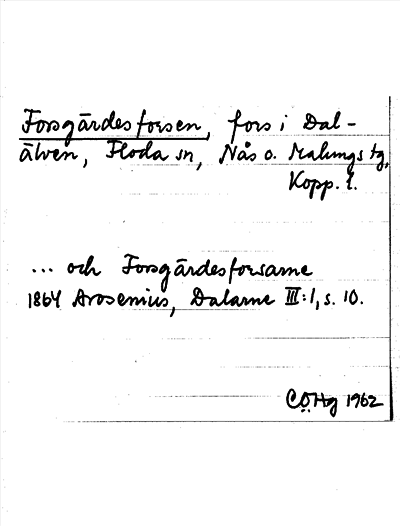 Forsgärdesforsen, fors i Dal-
älven, Floda sn, Nås o. Malungs tg,
Kopp. l.
... och Forsgärdesforsarne
1864 Arosenius, Dalarne III:1, s. 10.
CÖHg 1962